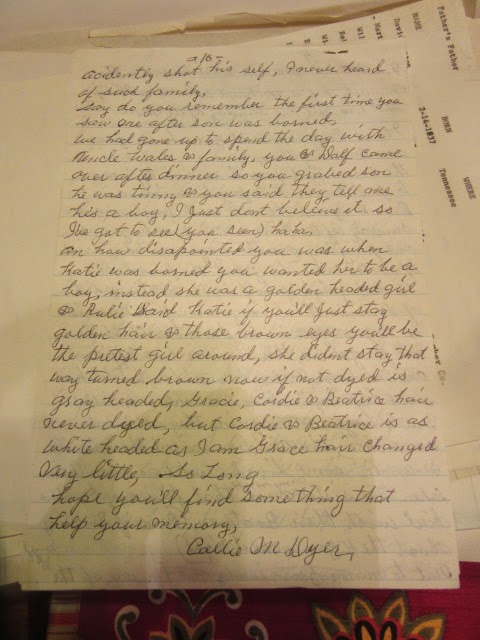 -16-
acidently shot his self, I never heard
of such family,
Say do you remember the first time you
saw one after son was borned
we had gone up to spend the day with
Uncle Wales & family, you & Dalf came
over after dinner so you grabed son
he was tinny & you said they tell me
he's a boy, I Just dont believe it so
I've got to see (you seen) haha,
an how disapointed you was when
Katie was borned you wanted her to be a
boy, instead she was a golden headed girl
& Rutie Said Katie if you'll Just stay
golden hair & those brown eyes you'll be
the pretest girl around, she didn't stay that
way turned brown now if not dyed is
gray headed, Gracie, Cordie & Beatrice hair
never dyed, but Cordie & Beatrice is as
white headed as I am Grace hair changed
Very little, So Long
hope you'll find something that
help your memory,
Callie M Dyer,
Father's Father
NAME
BORN
WHERE
Davi
Mart
Wil
Bel
Wi
2-14-1837
Tennessee
Co.